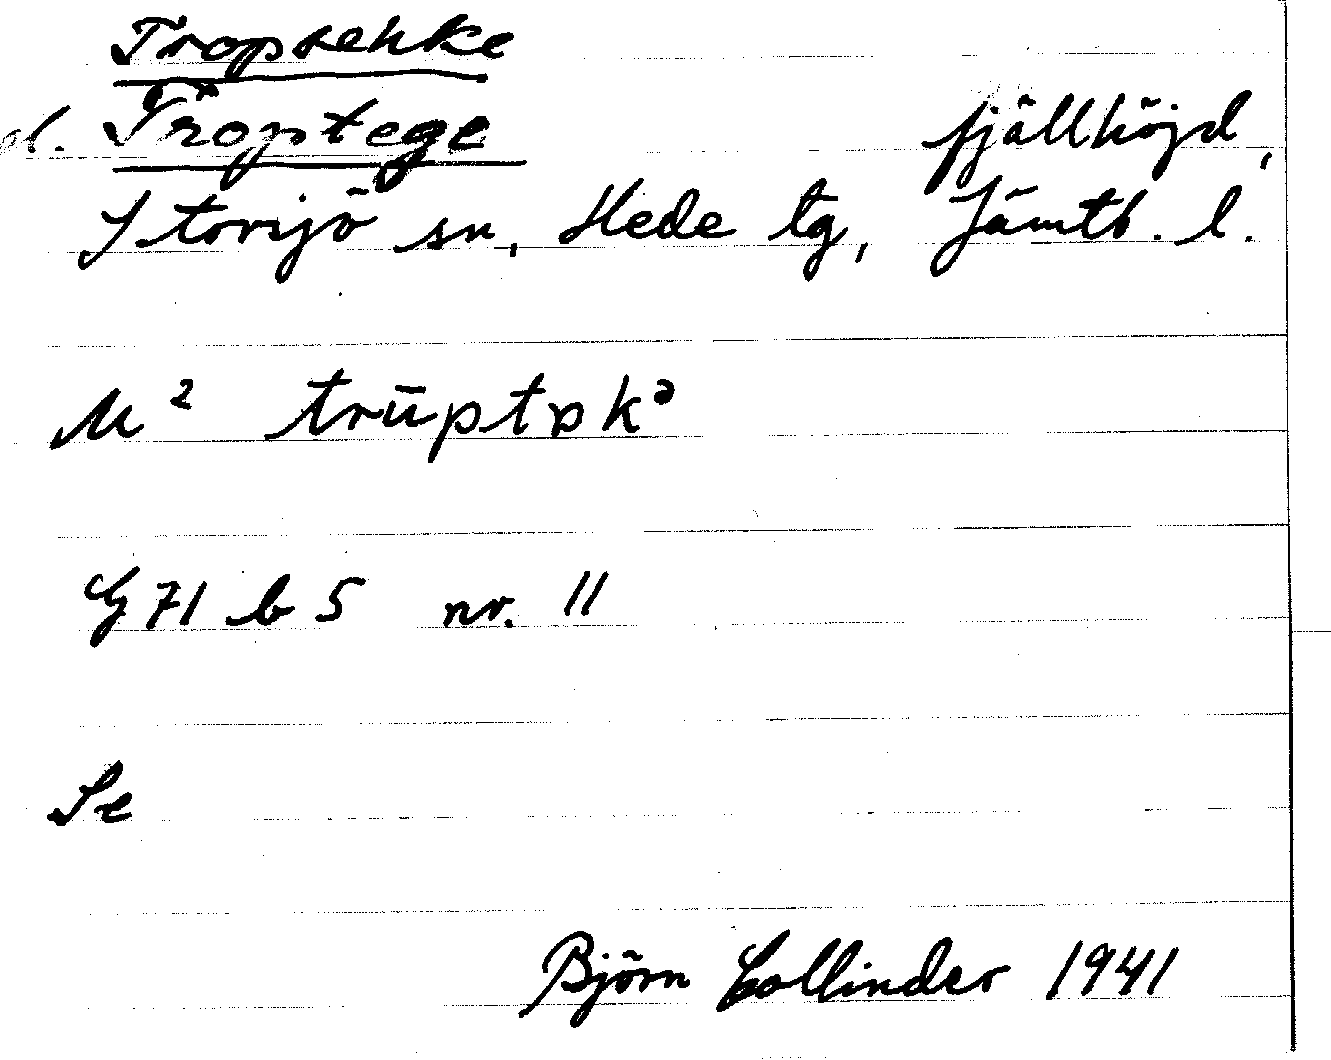 Tropsehke
el. Troptege fjällhöjd,
Storsjö sn, Hede tg, Jämtl. l.
M² trūptɒkᵊ
G 71 b 5 nr. 11
Se
Björn Collinder 1941